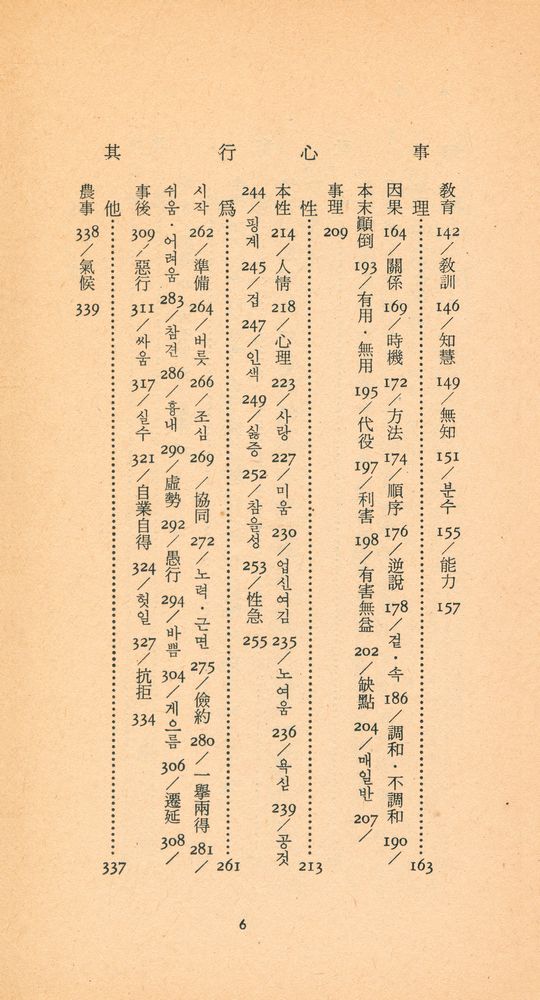 敎育 142／敎訓 146／知慧 149／無知 151／분수 155／能力 157
事理 163
因果 164／關係 169／時機 172／方法 174／順序 176／逆說 178／겉·속 186／調和·不調和 190／
本末顚倒 193／有用·無用 195／代役 197／利害 198／有害無益 202／缺點 204／매일반 207／
事理 209
心性 213
本性 214／人情 218／心理 223／사랑 227／미움 230／업신여김 235／노여움 236／욕심 239／공것
244／핑계 245／겁 247／인색 249／싫증 252／참을성 253／性急 255
行爲 261
시작 262／準備 264／버릇 266／조심 269／協同 272／노력·근면 275／儉約 280／一擧兩得 281／
쉬움·어려움 283／참견 286／흉내 290／虛勢 292／愚行 294／바쁨 304／게으름 306／遷延 308／
事後 309／惡行 311／싸움 317／실수 321／自業自得 324／헛일 327／抗拒 334
其他 337
農事 338／氣候 339
6